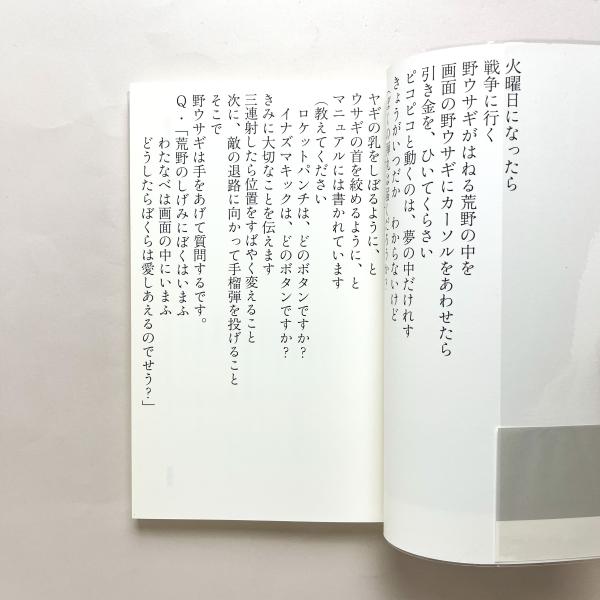 火曜日になったら
戦争に行く
野ウサギがはねる荒野の中を
画面の野ウサギにカーソルをあわせたら
引き金を、ひいてくらさい
ピコピコと動くのは、夢の中だけれす
きょうがいつだか　わからないけど
ヤギの乳をしぼるように、と
ウサギの首を絞めるように、と
マニュアルには書かれています
（教えてください
ロケットパンチは、どのボタンですか？
イナズマキックは、どのボタンですか？
きみに大切なことを伝えます
三連射したら位置をすばやく変えること
次に、敵の退路に向かって手榴弾を投げること
そこで
野ウサギは手をあげて質問するです。
Q・「荒野のしげみにぼくはいまふ
わたなべは画面の中にいまふ
どうしたらぼくらは愛しあえるのでせう？」